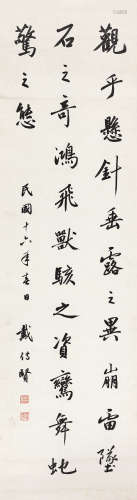 觀乎懸針垂露之異崩雷墜
石之奇鴻飛獸駭之資鸞舞虵
驚之態
民國十六年春日 戴傳賢